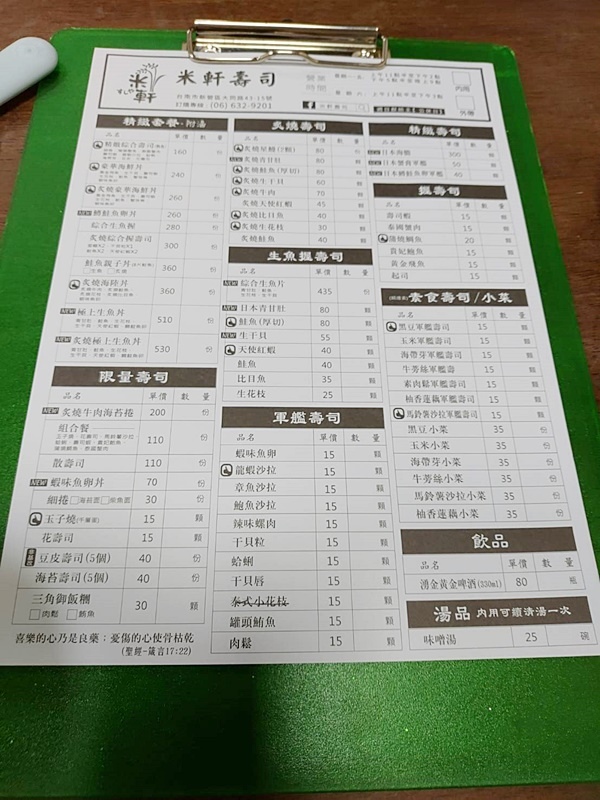 米軒壽司
訂購專線 (06) 632-9201
內用
外帶
精緻套餐·附湯
品名 單價 數量
精緻綜合壽司 160 份
豪華海鮮丼 240 份
炙燒豪華海鮮丼 260 份
NEW 鱒鮭魚卵丼 260 份
綜合生魚握 280 份
炙燒綜合握壽司 300 份
鮭魚親子丼 360 份
炙燒海陸丼 360 份
NEW 極上生魚丼 510 份
NEW 炙燒極上生魚丼 530 份
限量壽司
品名 單價 數量
NEW 炙燒牛肉海苔捲 200 份
組合餐 110 份
散壽司 110 份
NEW 蝦味魚卵丼 70 份
細捲 30 份
玉子燒 15 顆
花壽司 15 顆
豆皮壽司(5個) 40 份
海苔壽司(5個) 40 份
三角御飯糰 30 顆
肉鬆 鮪魚
喜樂的心乃是良藥：憂傷的心使骨枯乾
(聖經─箴言17:22)
炙燒壽司
品名 單價 數量
炙燒星鰻 80 顆
NEW 炙燒青甘肚 80 顆
炙燒鮭魚(厚切) 80 顆
炙燒生干貝 60 顆
炙燒牛肉 70 顆
炙燒天使紅蝦 45 顆
炙燒比目魚 40 顆
炙燒生花枝 30 顆
炙燒鮭魚 40 顆
生魚握壽司
品名 單價 數量
NEW 綜合生魚片 435 份
NEW 日本青甘肚 80 顆
鮭魚(厚切) 80 顆
NEW 生干貝 55 顆
天使紅蝦 40 顆
鮭魚 40 顆
比目魚 35 顆
生花枝 25 顆
軍艦壽司
品名 單價 數量
蝦味魚卵 15 顆
龍蝦沙拉 15 顆
章魚沙拉 15 顆
鮑魚沙拉 15 顆
辣味螺肉 15 顆
干貝粒 15 顆
蛤蜊 15 顆
干貝唇 15 顆
泰式小花枝 15 顆
罐頭鮪魚 15 顆
肉鬆 15 顆
精緻壽司
品名 單價 數量
NEW 日本海膽 300 顆
NEW 日本蟹膏軍艦 50 顆
NEW 日本鱒鮭魚卵軍艦 40 顆
握壽司
品名 單價 數量
壽司蝦 15 顆
泰國蟹肉 15 顆
蒲燒鯛魚 20 顆
貴妃鮑魚 15 顆
黃金飛魚 15 顆
起司 15 顆
素食壽司/小菜
品名 單價 數量
黑豆軍艦壽司 15 顆
玉米軍艦壽司 15 顆
海帶芽軍艦壽司 15 顆
牛旁絲軍艦壽 15 顆
素肉鬆軍艦壽司 15 顆
柚香蓮藕軍艦壽司 15 顆
馬鈴薯沙拉軍艦壽司 15 顆
黑豆小菜 15 份
玉米小菜 15 份
海帶芽小菜 15 份
牛旁絲小菜 15 份
馬鈴薯沙拉小菜 15 份
柚香蓮藕小菜 15 份
飲品
品名 單價 數量
湧金黃金啤酒(330ml) 80 瓶
湯品 內用可續清湯一次
味噌湯 25 碗